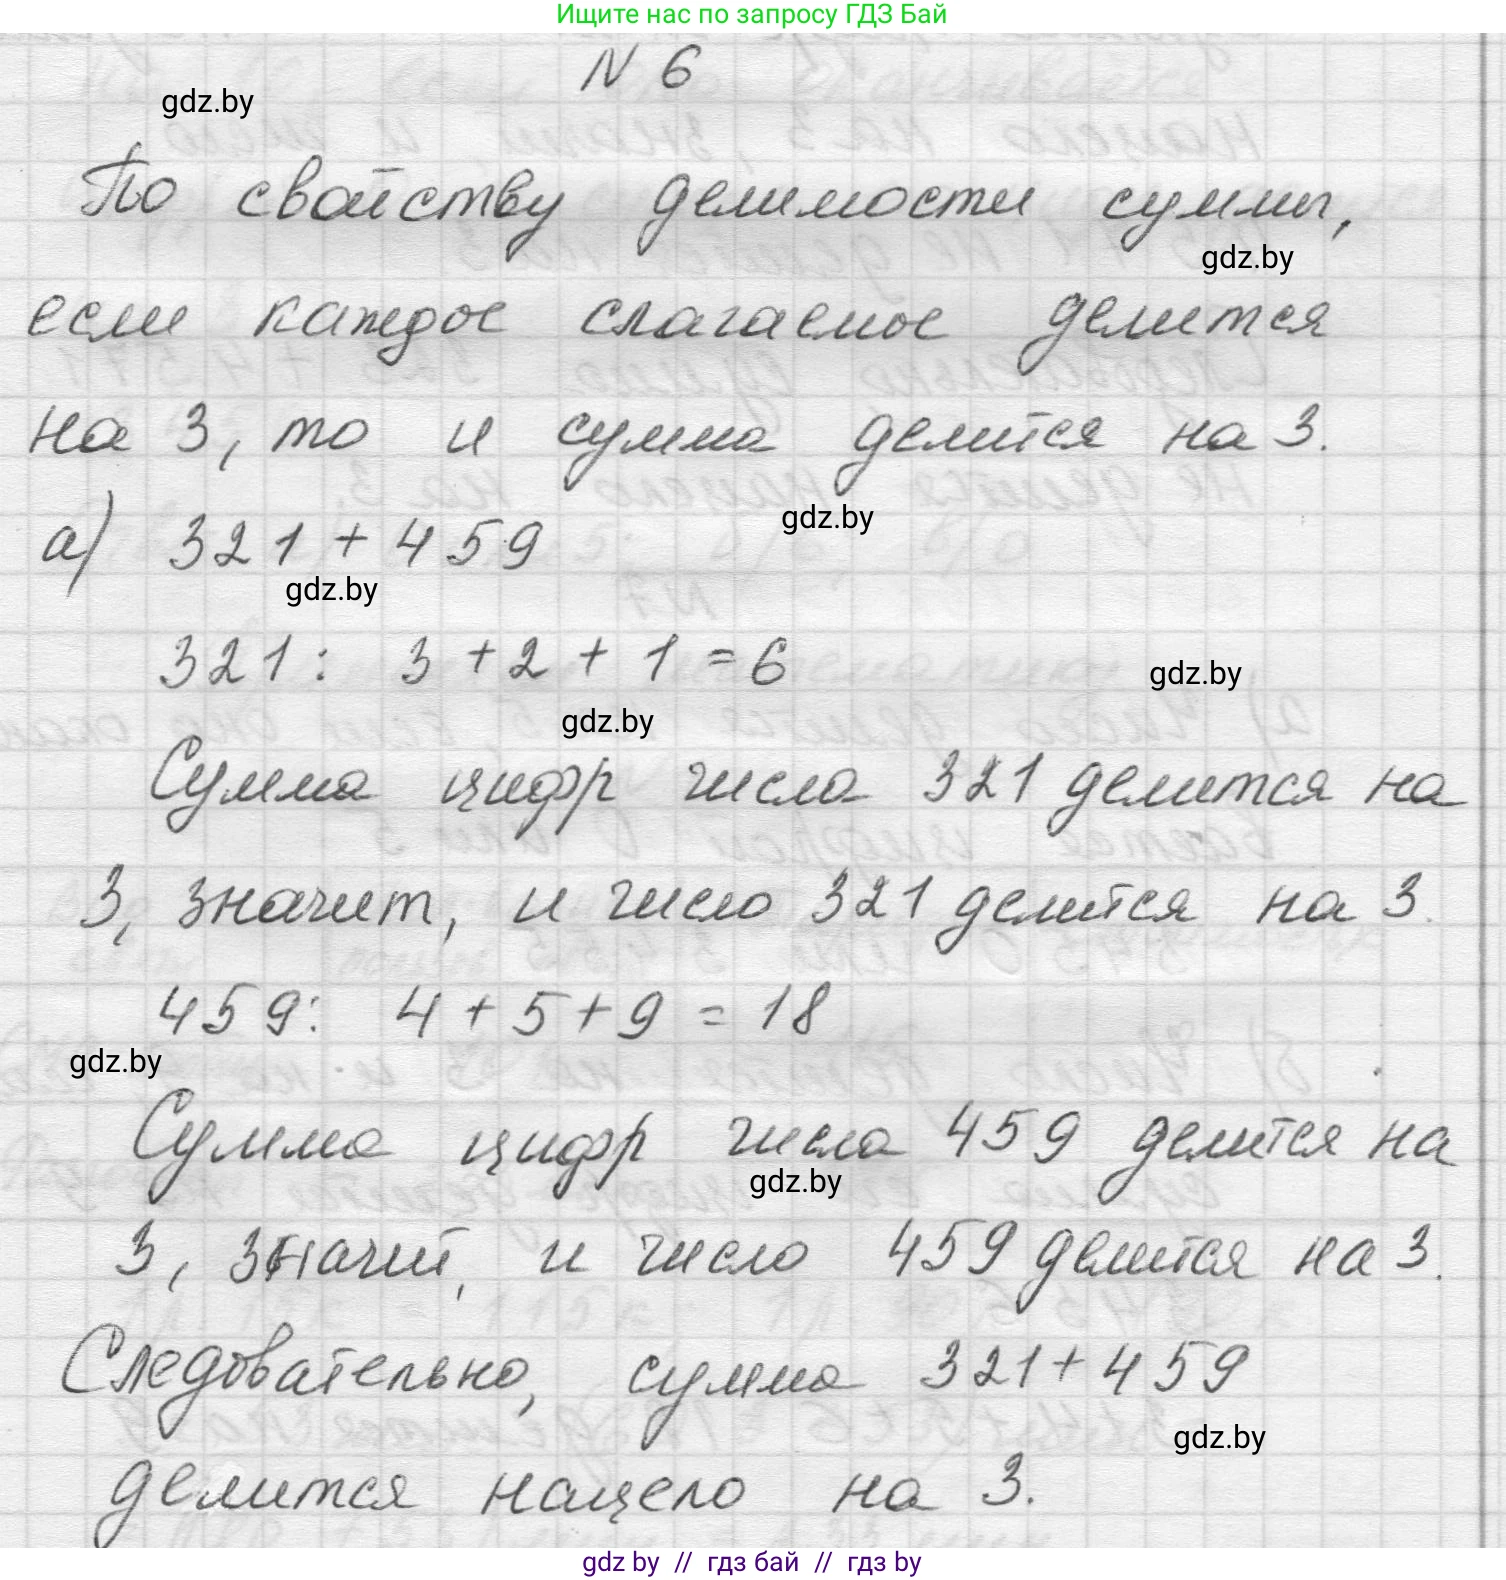 Ищите нас по запросу ГДЗ Бай
N 6
gdz.by
По свойству делимости суммы,
gdz.by
если каждое слагаемое делится
на 3, то и сумма делится на 3.
gdz.by
а) 321 + 459
gdz.by
321: 3 + 2 + 1 = 6
gdz.by
gdz.by
Сумма цифр числа 321 делится на
3, значит, и число 321 делится на 3.
459: 4 + 5 + 9 = 18
gdz.by
Сумма цифр числа 459 делится на
gdz.by
3, значит, и число 459 делится на 3.
Следовательно, сумма 321 + 459
gdz.by
делится нацело на 3.
gdz by // гдз бай // гдз by